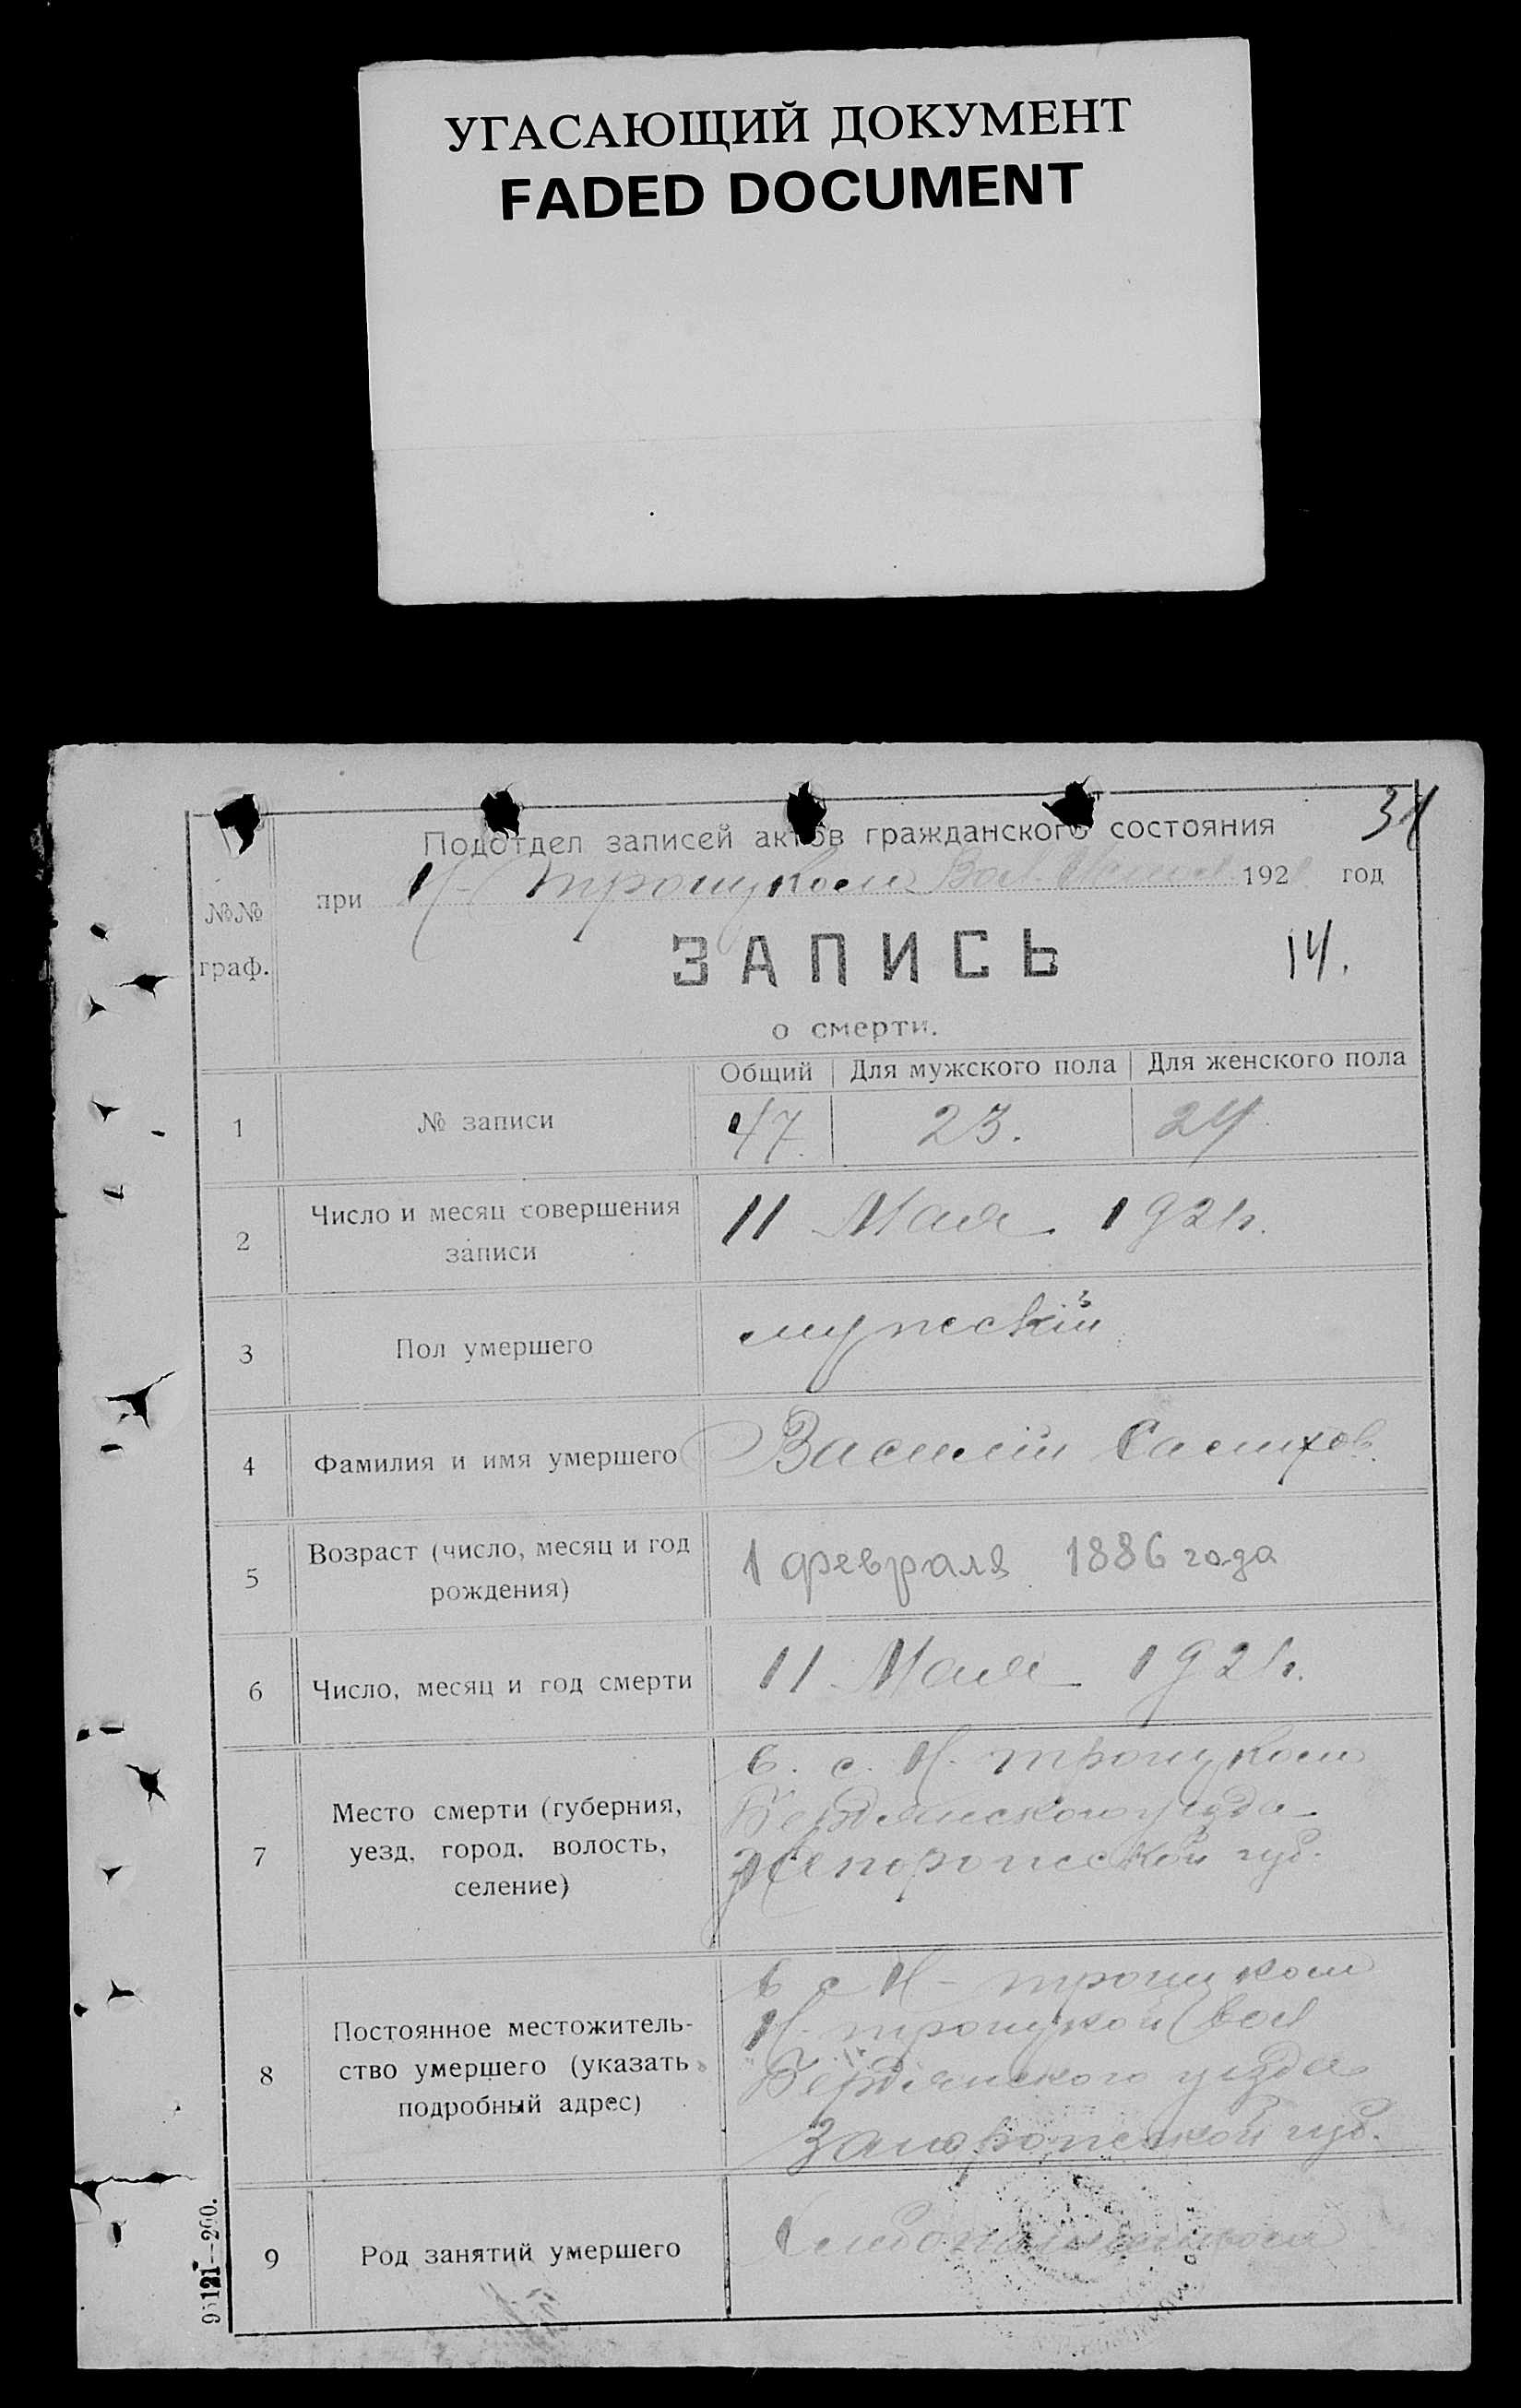 УГАСАЮЩИЙ ДОКУМЕНТ
FADED DOCUMENT
Подотдел записей актов гражданского состояния
при Н-Троицком Вол. 192 год
№№
граф.
ЗАПИСЬ
14.
о смерти.
Общий Для мужского пола Для женского пола
1 № записи 47. 23. 24
2 Число и месяц совершения
записи
11 Мая 1921г.
3 Пол умершего мужскій
4 Фамилия и имя умершего Василій
5 Возраст (число, месяц и год
рождения)
1 февраля 1886 года
6 Число, месяц и год смерти 11 Мая 1921г.
7 Место смерти (губерния,
уезд, город, волость,
селение)
в. с. Н. Троицком
Бердянского уезда
Запорожской губ.
8 Постоянное местожитель-
ство умершего (указать
подробный адрес)
в с Н-Троицком
Н-Троицкой вол
Бердянского уезда
Запорожской губ.
9 Род занятий умершего